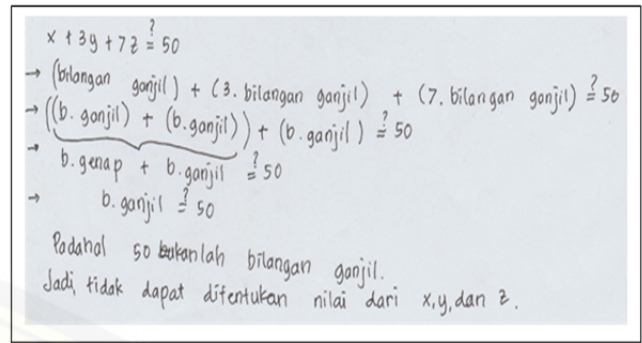 x + 3y + 7z ≟ 50
→ (bilangan ganjil) + (3. bilangan ganjil) + (7. bilangan ganjil) ≟ 50
→ ((b. ganjil) + (b. ganjil)) + (b. ganjil) ≟ 50
→ b. genap + b. ganjil ≟ 50
→ b. ganjil ≟ 50
Padahal 50 bukanlah bilangan ganjil.
Jadi, tidak dapat ditentukan nilai dari x, y, dan z.